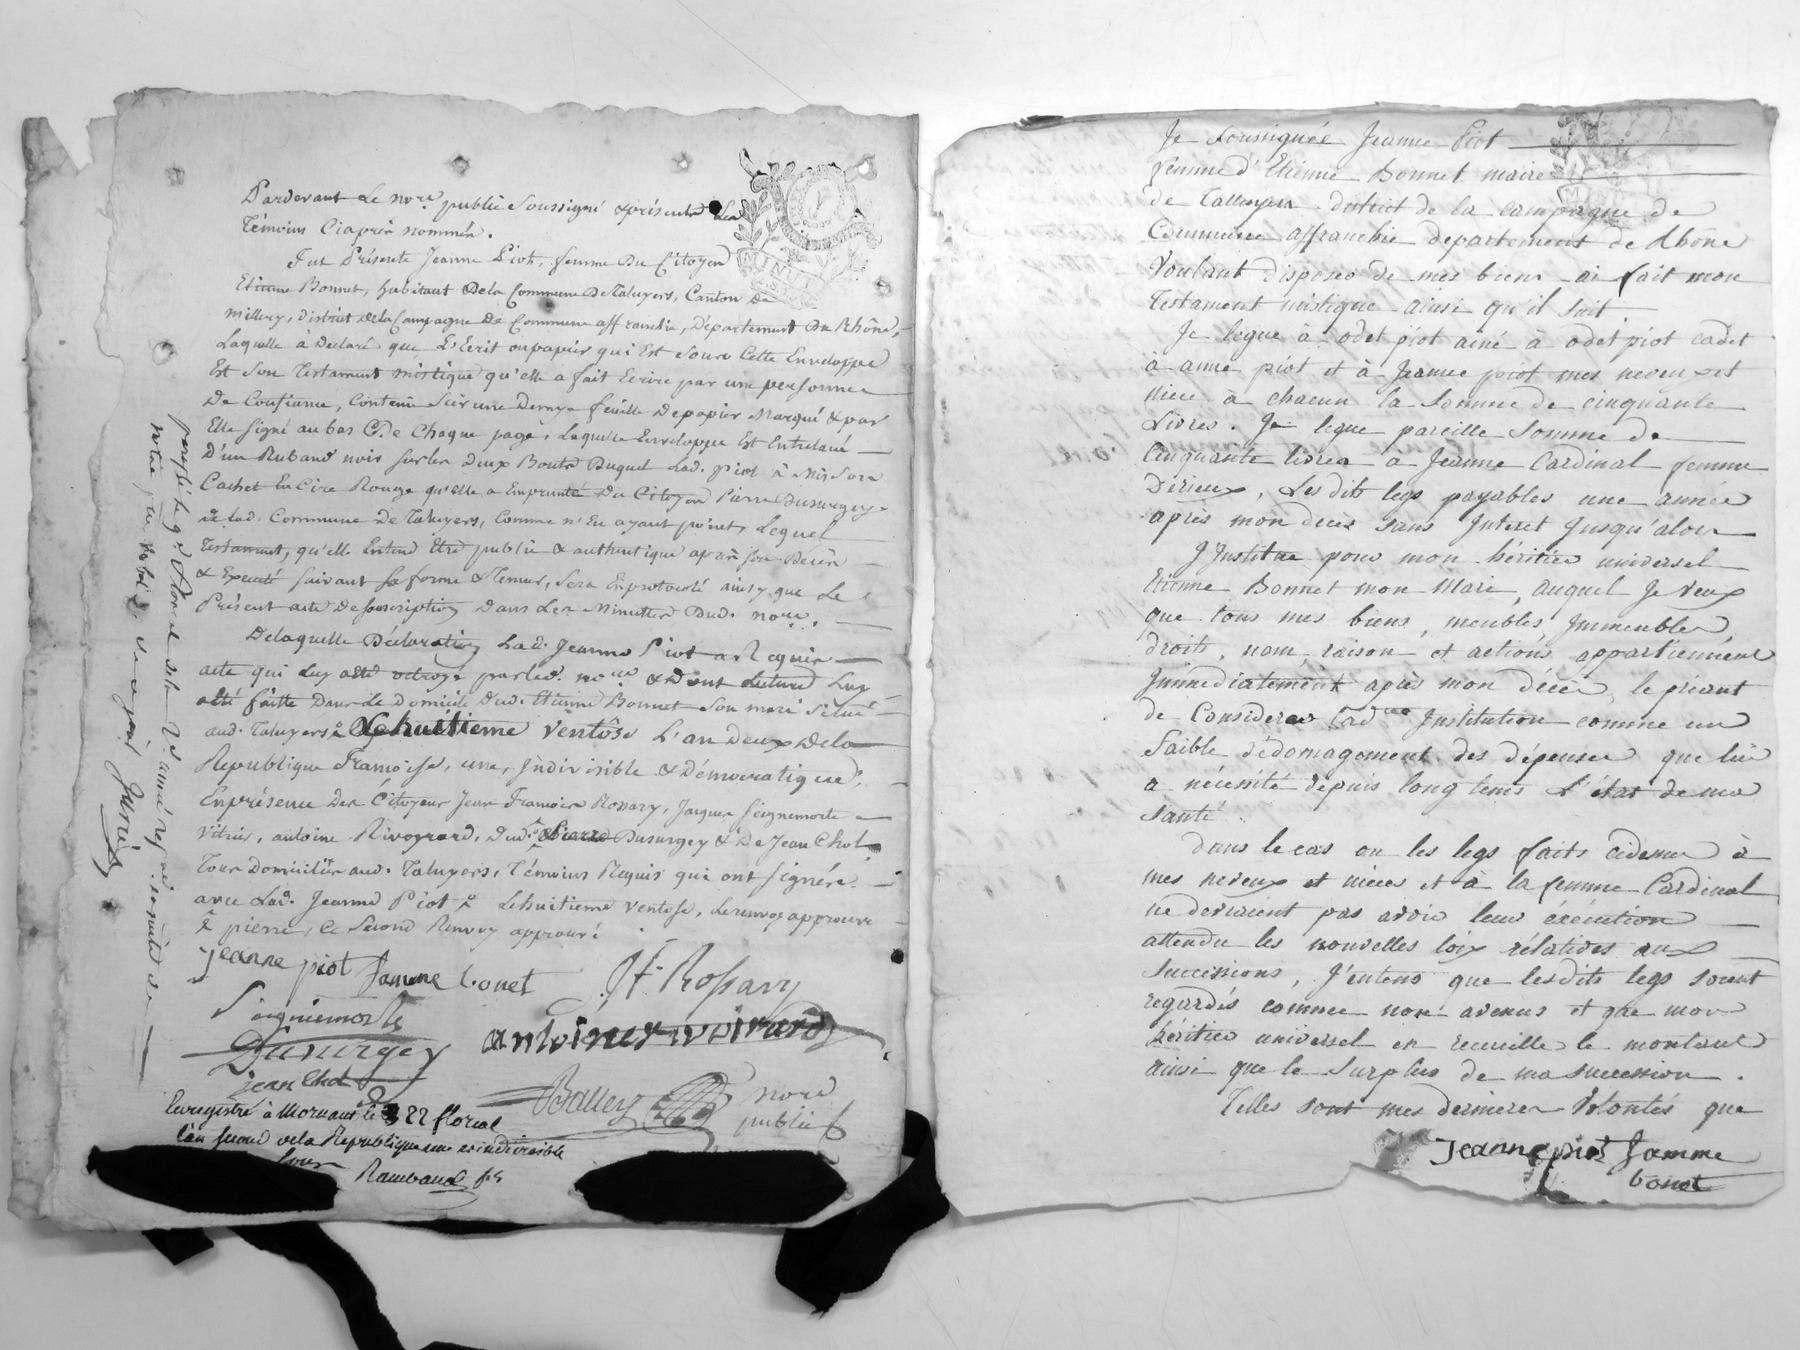 Pardevant Le nore. public Soussigné & présents Les
Témoins Ciaprès nommés.
Fut Présente Jeanne Piot, femme Du Citoyen
Etienne Bonnet, habitant Dela Commune De Taluyers, Canton de
Millery, District dela Campagne De Commune affranchie, Département du Rhône,
Laquelle à Declaré que L'Ecrit oupapier qui Est Sous Cette Enveloppe
Est Son Testament mistique qu'elle a fait Ecrire par une personne
De Confiance, Contenu Sur une Demye feuille Depapier Marqué & par
Elle Signé au bas & De Chaque page, Laquelle Enveloppe Est Entrelacée
D'un Ruband noir Sur les Deux Bouts Duquel Lad. piot à Mis Son
Cachet En Cire Rouge qu'elle a Emprunté Du Citoyen Pierre Dusurgey
de lad. Commune de Taluyers, Comme n'En ayant point, Lequel
Testament, qu'elle Entend Être public & authentique après Son Decès
& Executé Suivant Sa forme & Teneur, Sera Enprotocolé ainsy que Le
Présent acte De Souscription Dans Les Minuttes Dud. nore.
Delaquelle Déclaration Lad. Jeanne Piot a Requis
acte qui Luy a été octroyé par led. nore & Dont Lecture Luy
a été faitte Dans Le Domicile Dud. Etienne Bonnet Son mari Situé
aud. Taluyers Le huitieme ventôse L'an Deux Dela
Republique Francoise, une, Indivisible & Démocratique,
En présence Des Citoyens Jean François Rossary, Jacques Seignemorte
Vitrier, antoine Rivoirard, Dud. Pierre Dusurgey & De Jean Chol
Tous Domiciliés aud. Taluyers, Témoins Requis qui ont Signérs
avec Lad. Jeanne Piot Lehuitieme ventose, Le renvoy approuvé
pierre, Ce Second Renvoy approuvé
jeanne piot famme bonet J f Rossary
Seignemorte
Dusurgey antoine rivoirard
jean Chol
Balley nore
public
Enregistré à Mornant le 22 floreal
l'an second de la Republique une et indivisible
Rambaud
Je Soussignée Jeanne Piot
femme d'Etienne Bonnet maire
de Talluyers district de la campagne de
Commune affranchie departement de Rhône
Voulant disposer de mes biens ai fait mon
Testament mistique ainsi qu'il suit.
Je legue à odet piot ainé à odet piot cadet
à anne piot et à Jeanne piot mes neveux et
niece à chacun la Somme de cinquante
Livres. Je legue pareille Somme de
Cinquante livres à Jeanne Cardinal femme
Dérieux, Lesdits legs payables une année
après mon decès sans Interet jusqu'alors
J Institue pour mon héritier universel
Etienne Bonnet mon Mari, auquel Je veux
que tous mes biens, meubles Immeubles,
droits, nom, raison et actions appartiennent
Immédiatement après mon décès, le priant
de Considerer lad. Institution comme un
faible dédomagement des dépenses que lui
a nécessité depuis long tems l'état de ma
Santé.
Dans le cas ou les legs faits cidessus à
mes neveux et nieces et à la femme Cardinal
ne devraient pas avoir leur éxécution
attendu les nouvelles loix rélatives aux
Successions, J'entens que lesdits legs soient
regardés comme non avenus et que mon
héritier universel en receuille le montant
ainsi que le Surplus de ma succession.
Telles sont mes dernieres Volontés que
jeanne piot famme
bonet